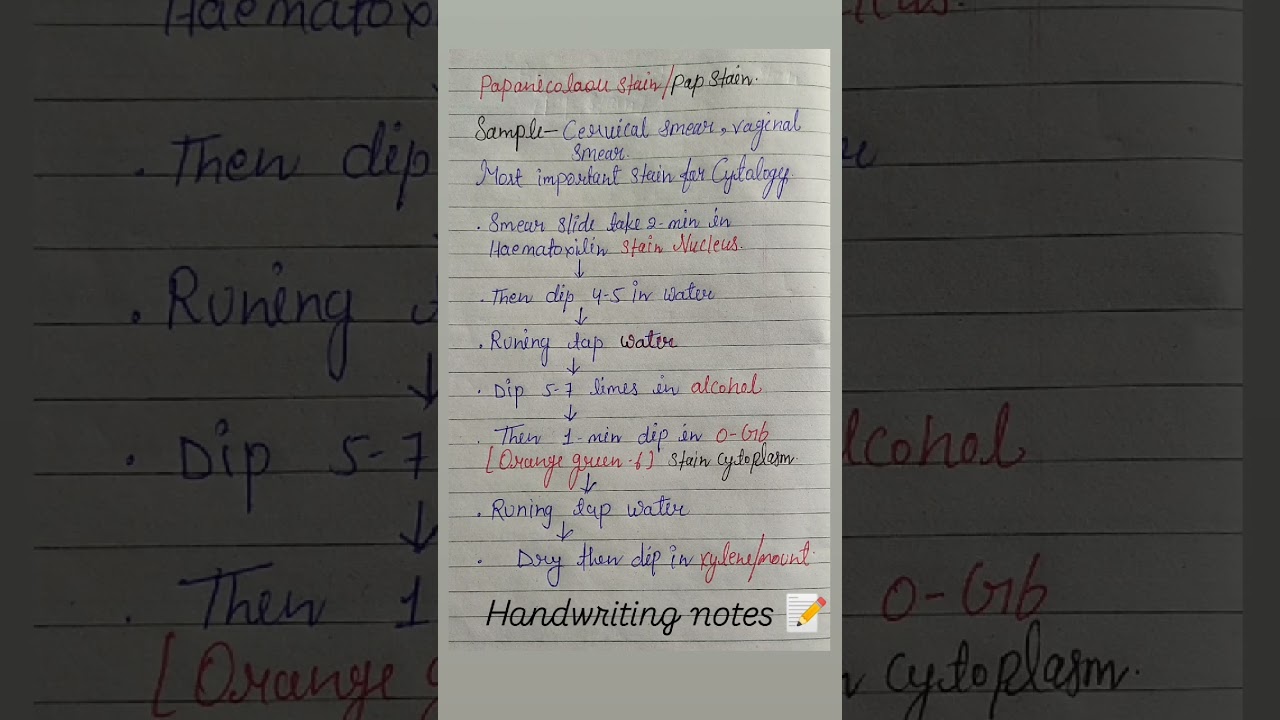 Papanicolaou stain/Pap stain.
Sample- Cervical smear, vaginal
smear.
Most important stain for Cytology.
. Smear slide take 2-min in
Haematoxilin stain Nucleus.
↓
. Then dip 4-5 in water
↓
. Runing tap water
↓
. Dip 5-7 times in alcohol
↓
. Then 1-min dip in O-G6
[Orange green-6] stain cytoplasm.
↓
. Runing tap water
↓
. Dry then dip in xylene/mount.
Handwriting notes 📝
Haematox
. Then dip
. Runing
↓
. Dip 5-7
↓
. Then 1
[Orange g
lcohol
O-G6
cytoplasm.